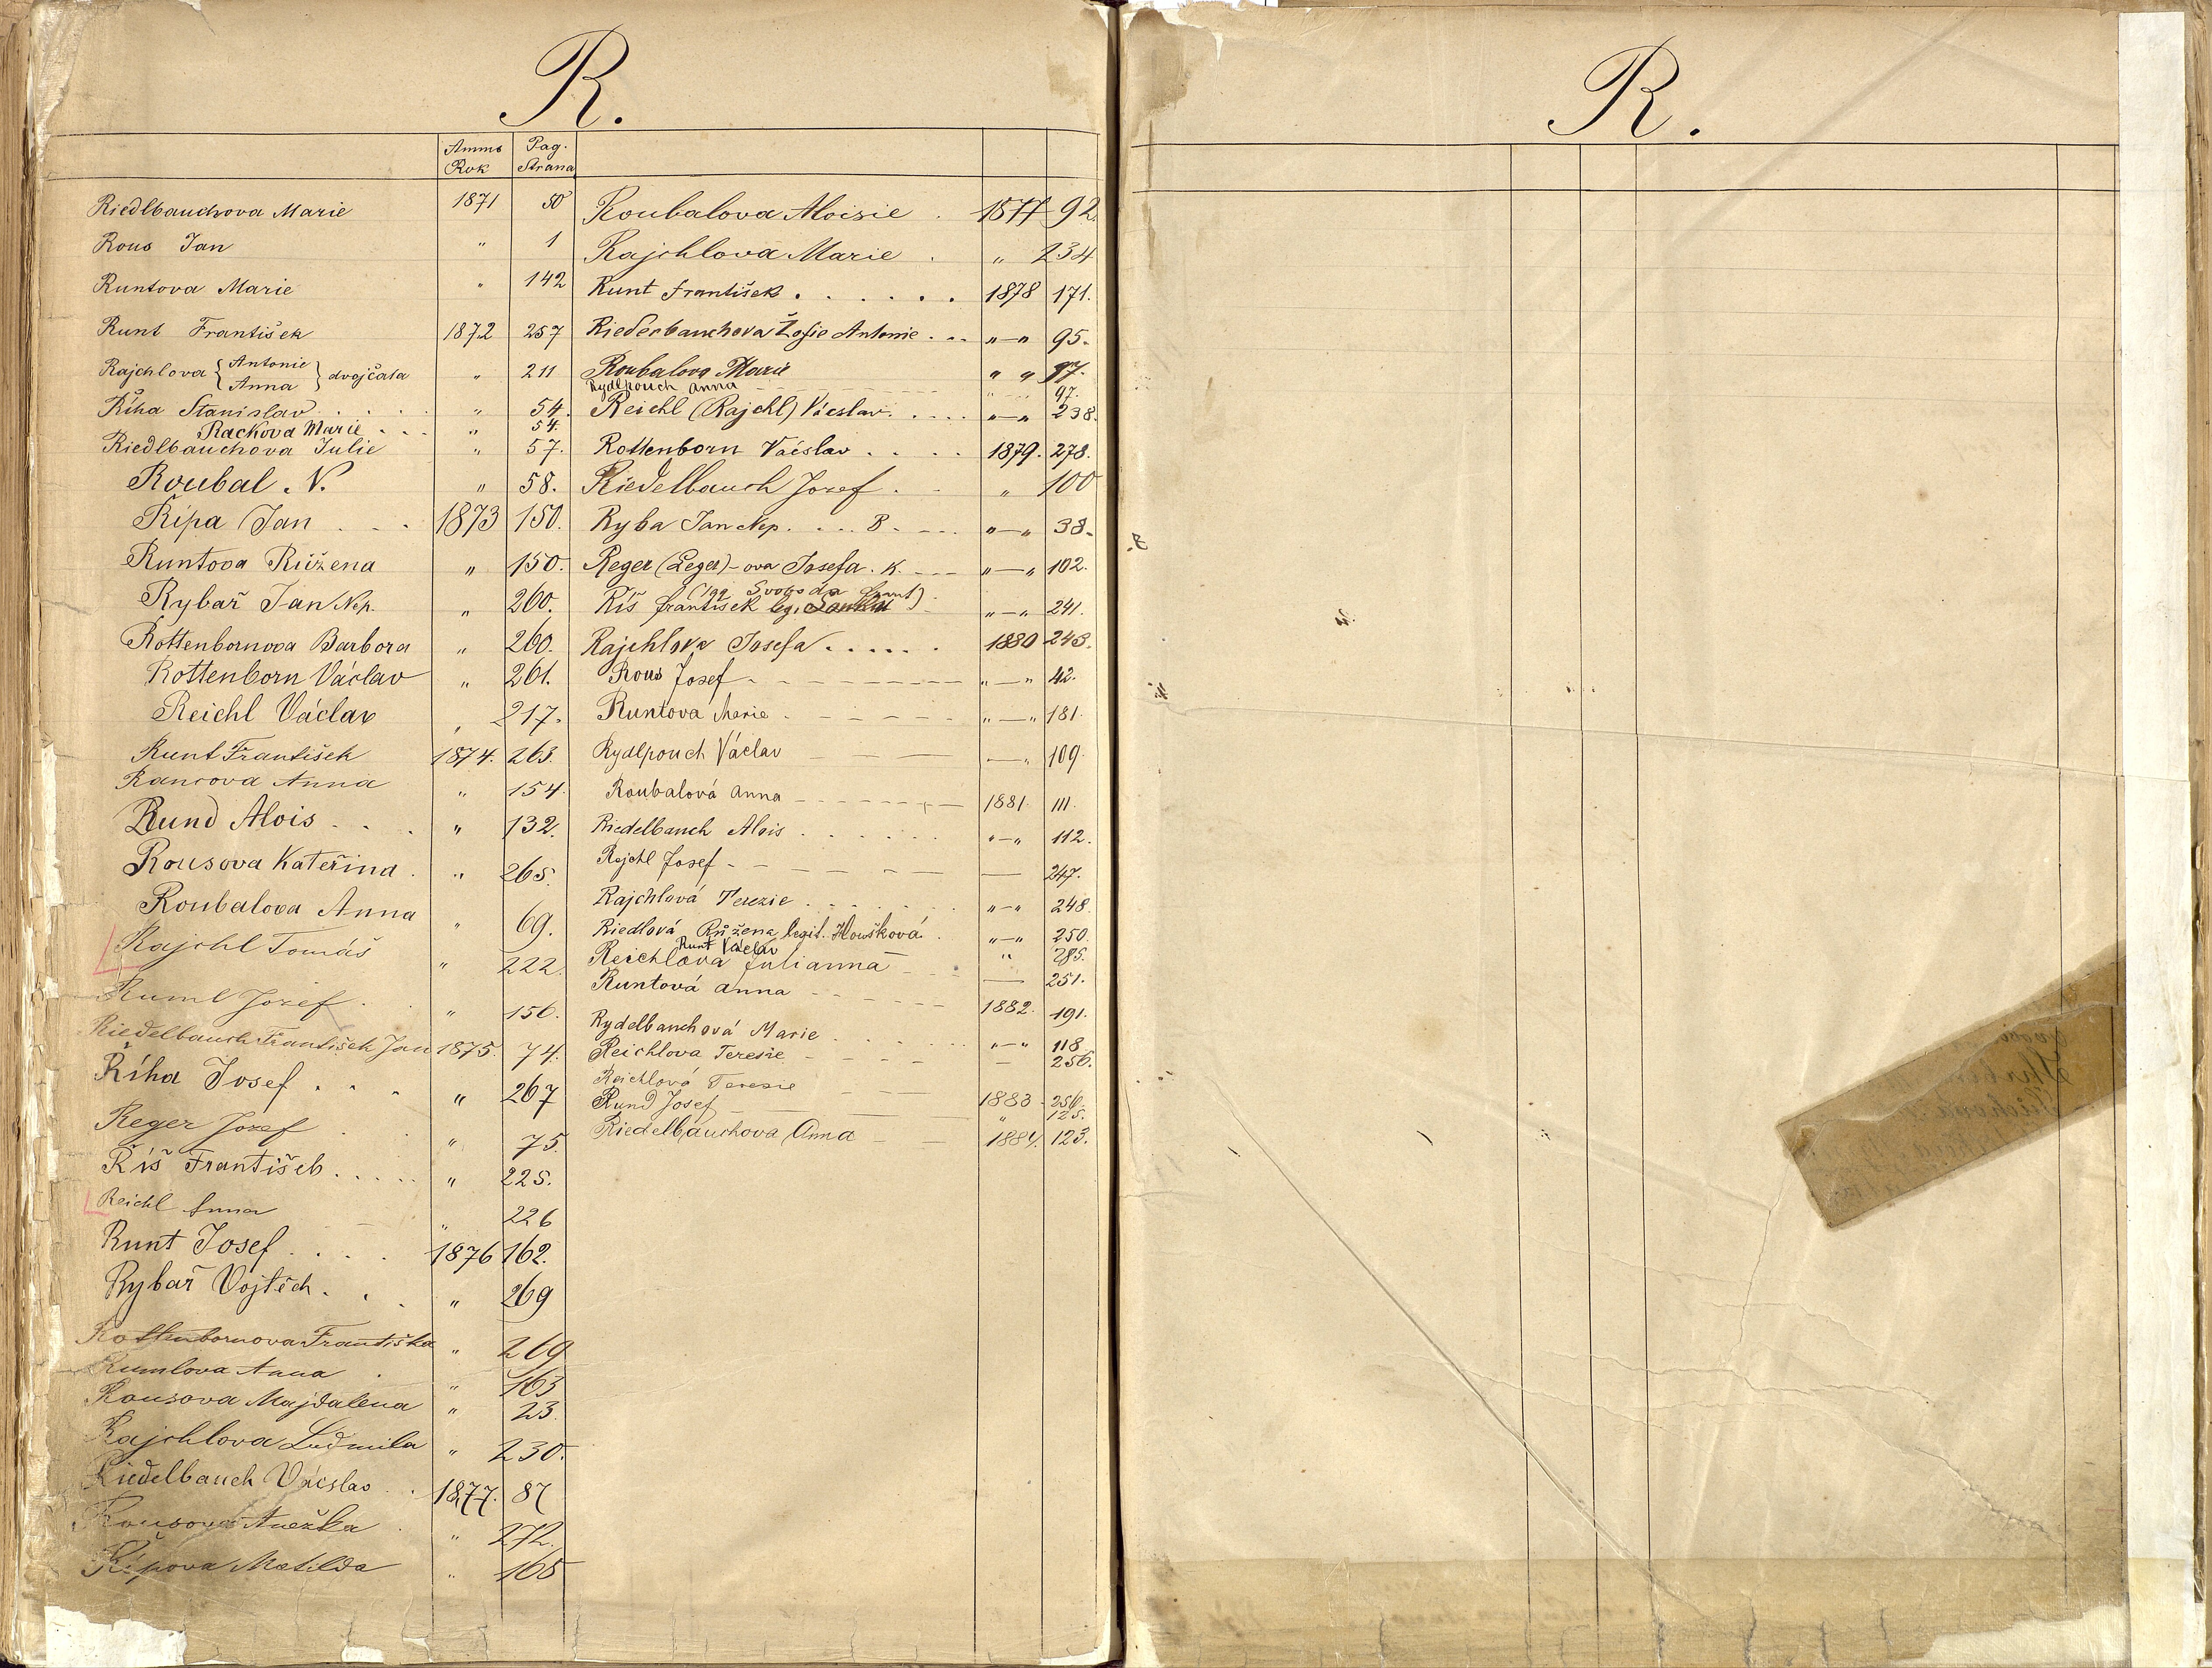 R.
Annus Pag.
Rok Strana
Riedlbauchova Marie 1871 50
Rous Jan " 1
Runtova Marie " 142
Runt František 1872 257
Rajchlova { Antonie Anna } dvojčata " 211
Říha Stanislav . . . . " 54.
Rackova Marie . . . " 54.
Riedlbauchova Julie " 57.
Roubal N. " 58.
Řípa Jan . . . 1873 150.
Runtova Růžena " 150.
Rybař Jan Nep. " 260.
Rottenbornova Barbora " 260.
Rottenborn Václav " 261.
Reichl Václav " 217.
Runt František 1874. 263.
Rancova Anna " 154.
Rund Alois . . . " 132.
Rousova Kateřina . " 265.
Roubalova Anna " 69.
Rajchl Tomáš " 222.
Ruml Josef . " 156.
Riedelbauch František Jan 1875. 74.
Říha Josef . . . " 267
Reger Josef . " 75.
Říš František . . . . . " 225.
Reichl Anna " 226
Runt Josef . . . . 1876 162.
Rybař Vojtěch . . . " 269
Rottenbornova Františka " 269
Rumlova Anna . " 163
Rousova Majdalena " 23.
Rajchlova Ludmila " 230.
Riedelbauch Václav . . 1877. 87
Rousova Anežka . " 272.
Řípova Matilda " 165
Roubalova Aloisie . 1877 92.
Rajchlova Marie . " 234
Runt František . . . . . . 1878 171.
Riederbauchova Žofie Antonie . . . "—" 95.
Roubalova Marie " " 97.
Rydlpouch Anna " " 97.
Reichl (Rajchl) Vácslav . . . . . "—" 238.
Rottenborn Vácslav . . . . 1879. 278.
Riedelbauch Josef . . " 100
Ryba Jan Nep. . . . 8. "—" 38.
Reger (Leger)-ova Josefa. K. "—" 102.
Svoboda Frant)
Říš František leg. "—" 241.
Rajchlova Josefa . . . . . . 1880 243.
Rous Josef "—" 42.
Runtová Marie . "—" 181.
Rydlpouch Václav —" 109.
Roubalová Anna 1881. 111.
Riedelbauch Alois . . . . . . "—" 112.
Rajchl Josef — 247.
Rajchlová Terezie . . . . . "—" 248
Riedlová Růžena legit. Houšková . "—" 250.
Runt Václav " 285.
Reichlova Julianna — 251.
Runtová Anna 1882. 191.
Rydelbauchová Marie . . . . "—" 118
Reichlova Teresie — 256.
Reichlová Terezie 1883 256.
Rund Josef " 125.
Riedelbauchova Anna 1884. 123.
R.